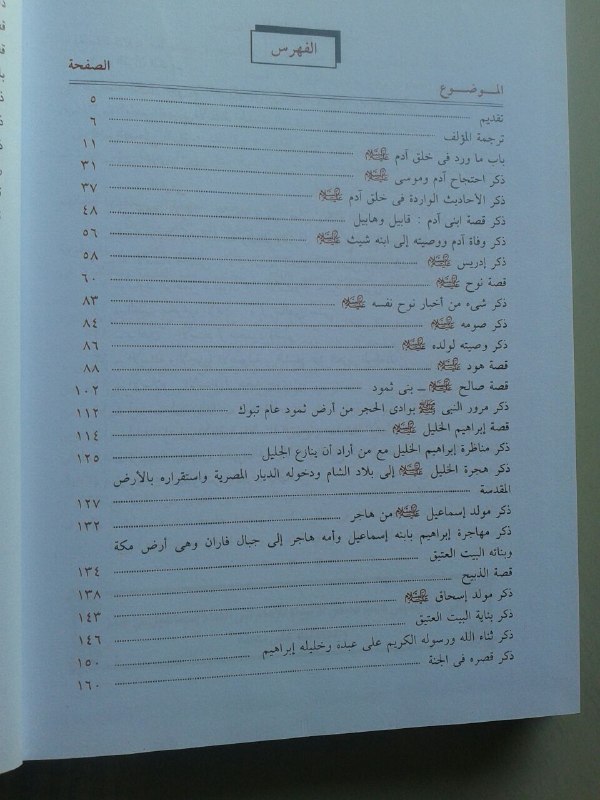 الفهرس
الموضـــوع الصفحة
تقديم ٥
ترجمة المؤلف ٦
باب ما ورد فى خلق آدم ﷺ ١١
ذكر احتجاج آدم وموسى ﷺ ٣١
ذكر الأحاديث الواردة فى خلق آدم ﷺ ٣٧
ذكر قصة ابنى آدم : قابيل وهابيل ٤٨
ذكر وفاة آدم ووصيته إلى ابنه شيث ﷺ ٥٦
ذكر إدريس ﷺ ٥٨
قصة نوح ﷺ ٦٠
ذكر شىء من أخبار نوح نفسه ﷺ ٨٣
ذكر صومه ﷺ ٨٤
ذكر وصيته لولده ﷺ ٨٦
قصة هود ﷺ ٨٨
قصة صالح ﷺ ــ بنى ثمود ١٠٢
ذكر مرور النبى ﷺ بوادى الحجر من أرض ثمود عام تبوك ١١٢
قصة إبراهيم الخليل ﷺ ١١٤
ذكر مناظرة إبراهيم الخليل مع من أراد أن ينازع الجليل ١٢٥
ذكر هجرة الخليل ﷺ إلى بلاد الشام ودخوله الديار المصرية واستقراره بالأرض
المقدسة ١٢٧
ذكر مولد إسماعيل ﷺ من هاجر ١٣٢
ذكر مهاجرة إبراهيم بابنه إسماعيل وأمه هاجر إلى جبال فاران وهى أرض مكة
وبنائه البيت العتيق ١٣٤
قصة الذبيح ١٣٨
ذكر مولد إسحاق ﷺ ١٤٣
ذكر بناية البيت العتيق ١٤٦
ذكر ثناء الله ورسوله الكريم على عبده وخليله إبراهيم ١٥٠
ذكر قصره فى الجنة ١٦٠